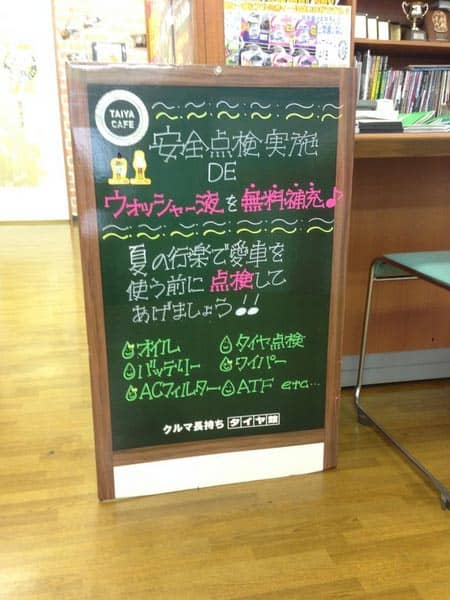 TAIYA
CAFE
安全点検実施
DE
ウォッシャー液を無料補充♪
夏の行楽で愛車を
使う前に点検して
あげましょう!!
オイル
タイヤ点検
バッテリー
ワイパー
ACフィルター
ATF etc...
クルマ長持ち タイヤ館